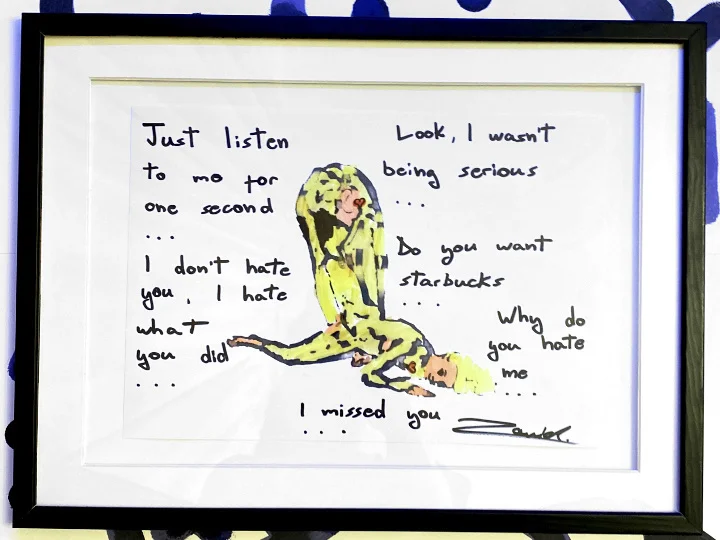 Just listen
to me for
one second
...
I don't hate
you, I hate
what
you did
....
Look, I wasn't
being serious
...
Do you want
starbucks
....
Why do
you hate
me
....
I missed you
...